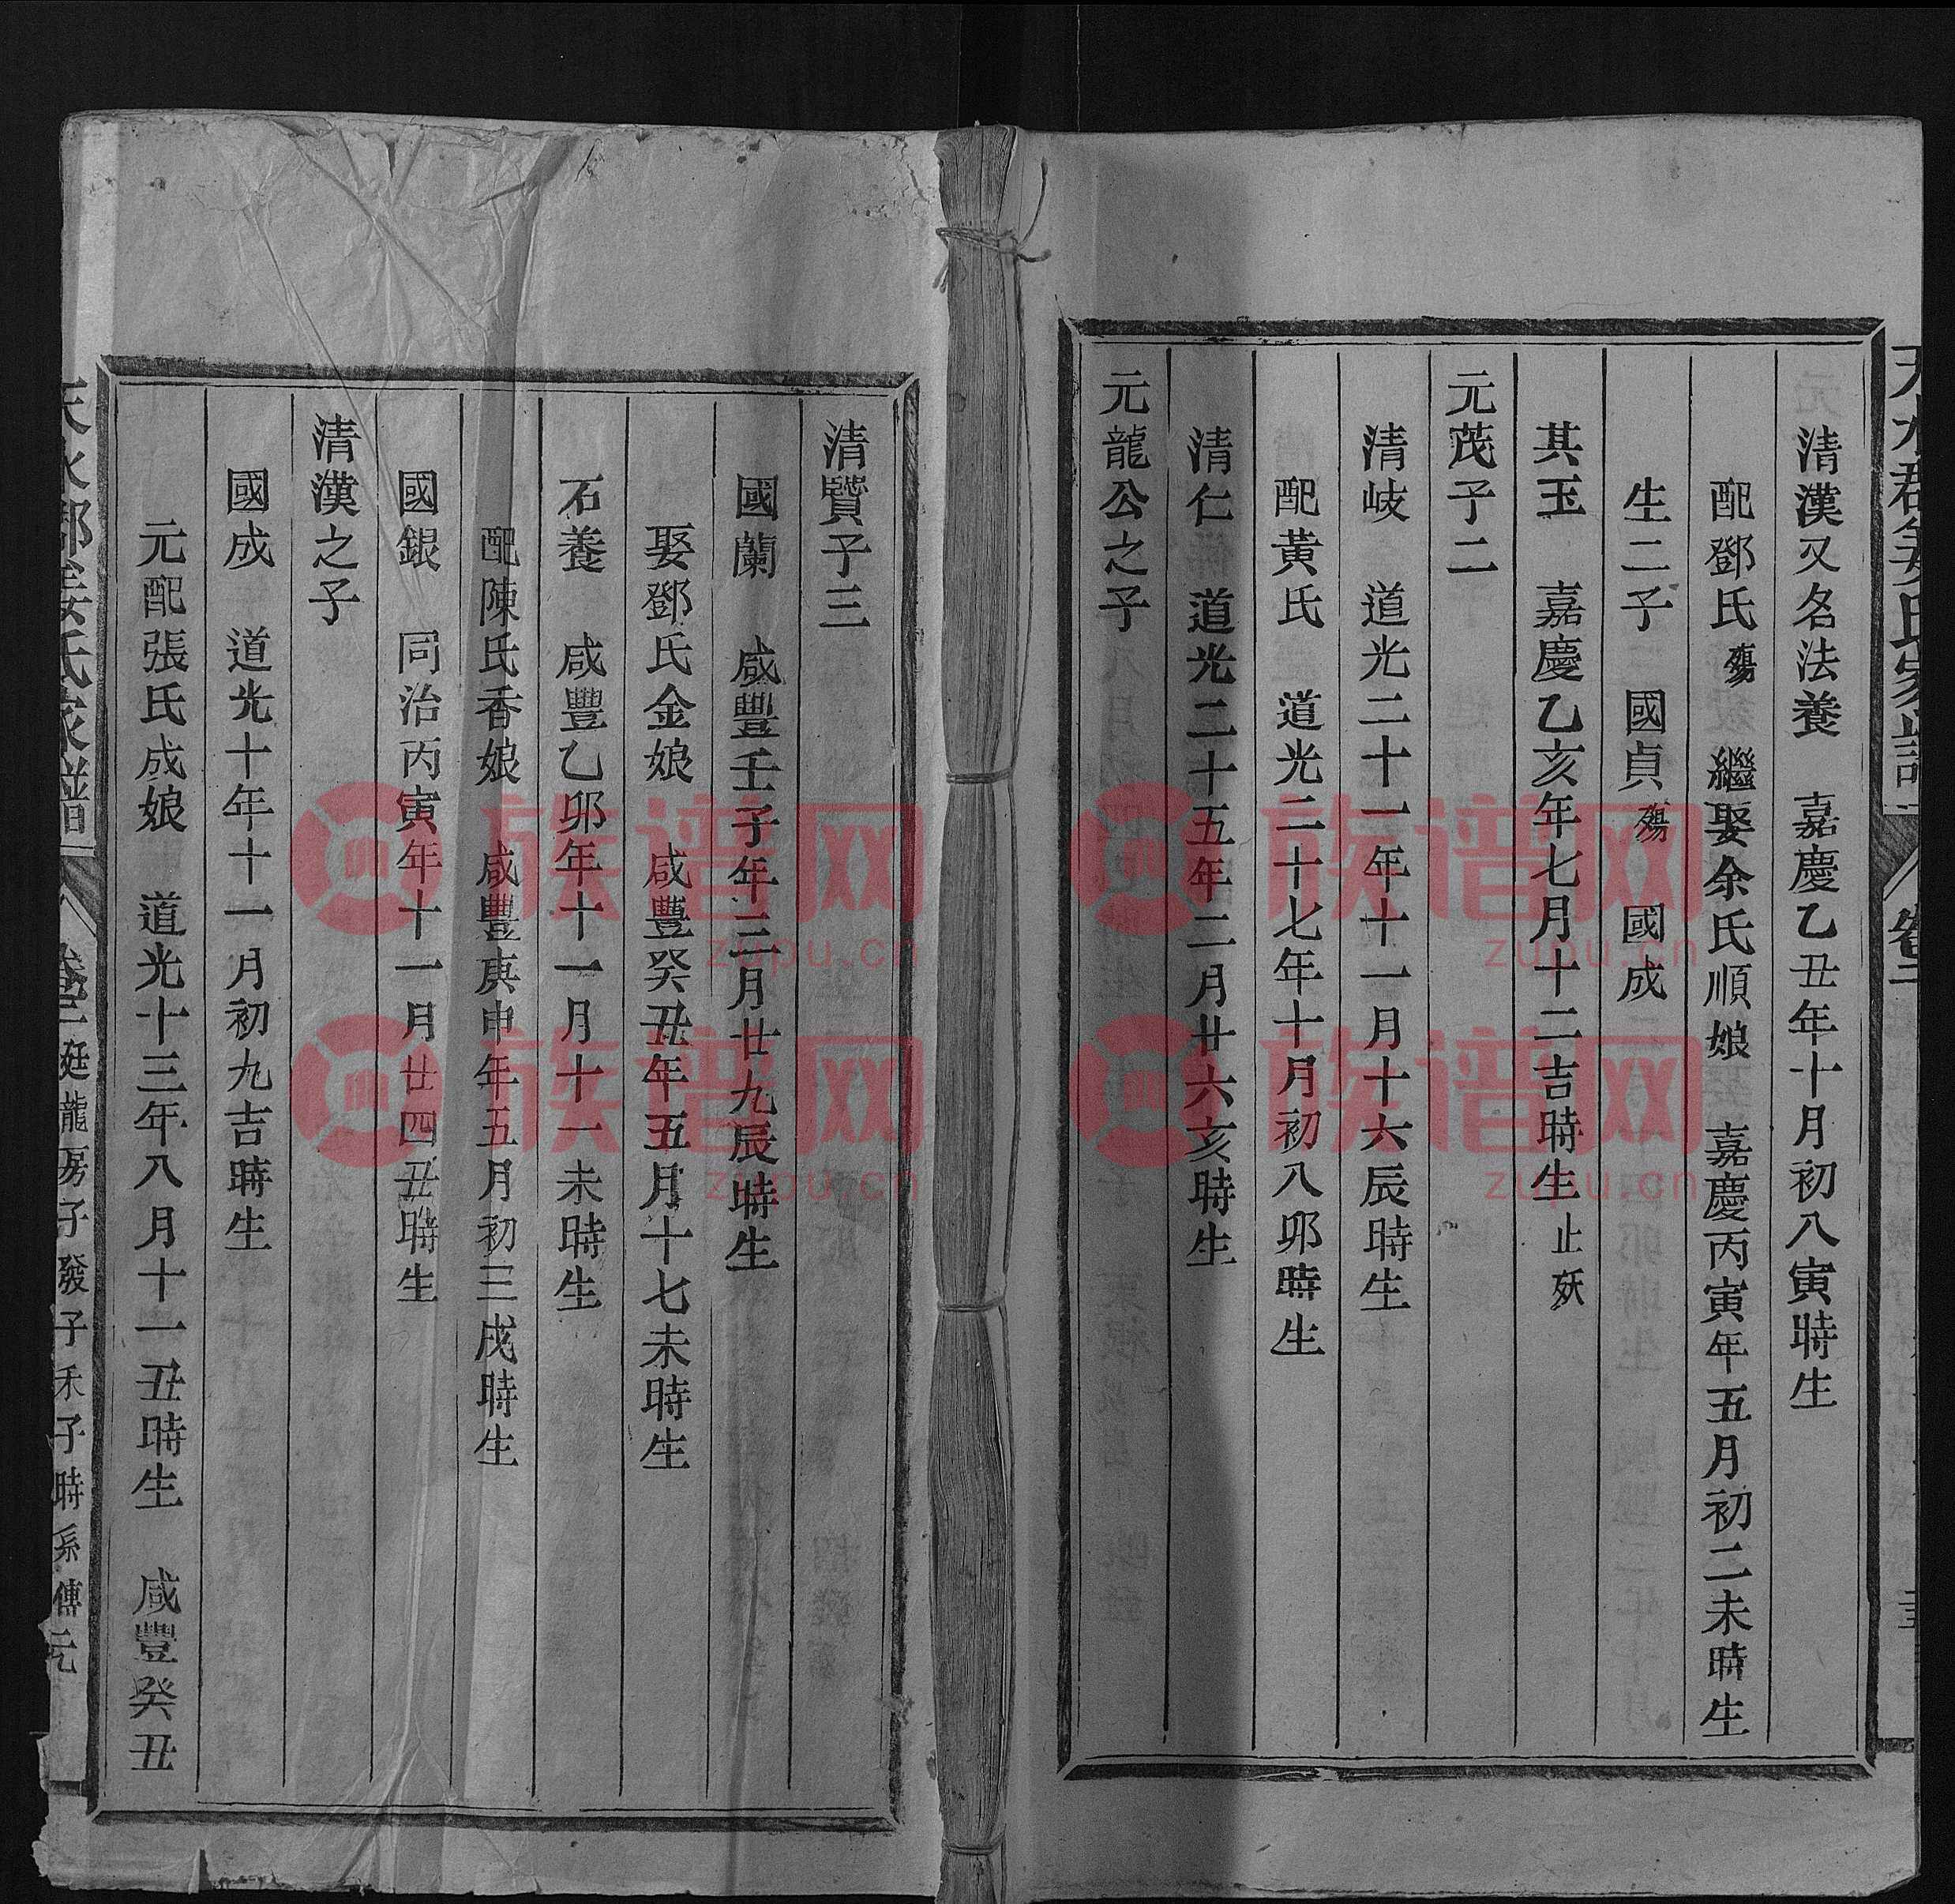 清漢又名法養　嘉慶乙丑年十月初八寅時生
配鄧氏殤　繼娶余氏順娘　嘉慶丙寅年五月初二未時生
生二子　國貞殤　國成
其玉　嘉慶乙亥年七月十二吉時生止妖
元茂子二
清岐　道光二十一年十一月十六辰時生
配黃氏　道光二十七年十月初八卯時生
清仁　道光二十五年二月廿六亥時生
元龍公之子
清贒子三
國蘭　咸豐壬子年三月廿九辰時生
娶鄧氏金娘　咸豐癸丑年五月十七未時生
石養　咸豐乙卯年十一月十一未時生
配陳氏香娘　咸豐庚申年五月初三戌時生
國銀　同治丙寅年十一月廿四丑時生
清漢之子
國成　道光十年十一月初九吉時生
元配張氏成娘　道光十三年八月十一丑時生　咸豐癸丑
天水郡姜氏家譜　卷二　庭龍房子發子禾子時系傳元
族谱网
zupu.cn
族谱网
zupu.cn
族谱网
zupu.cn
族谱网
zupu.cn